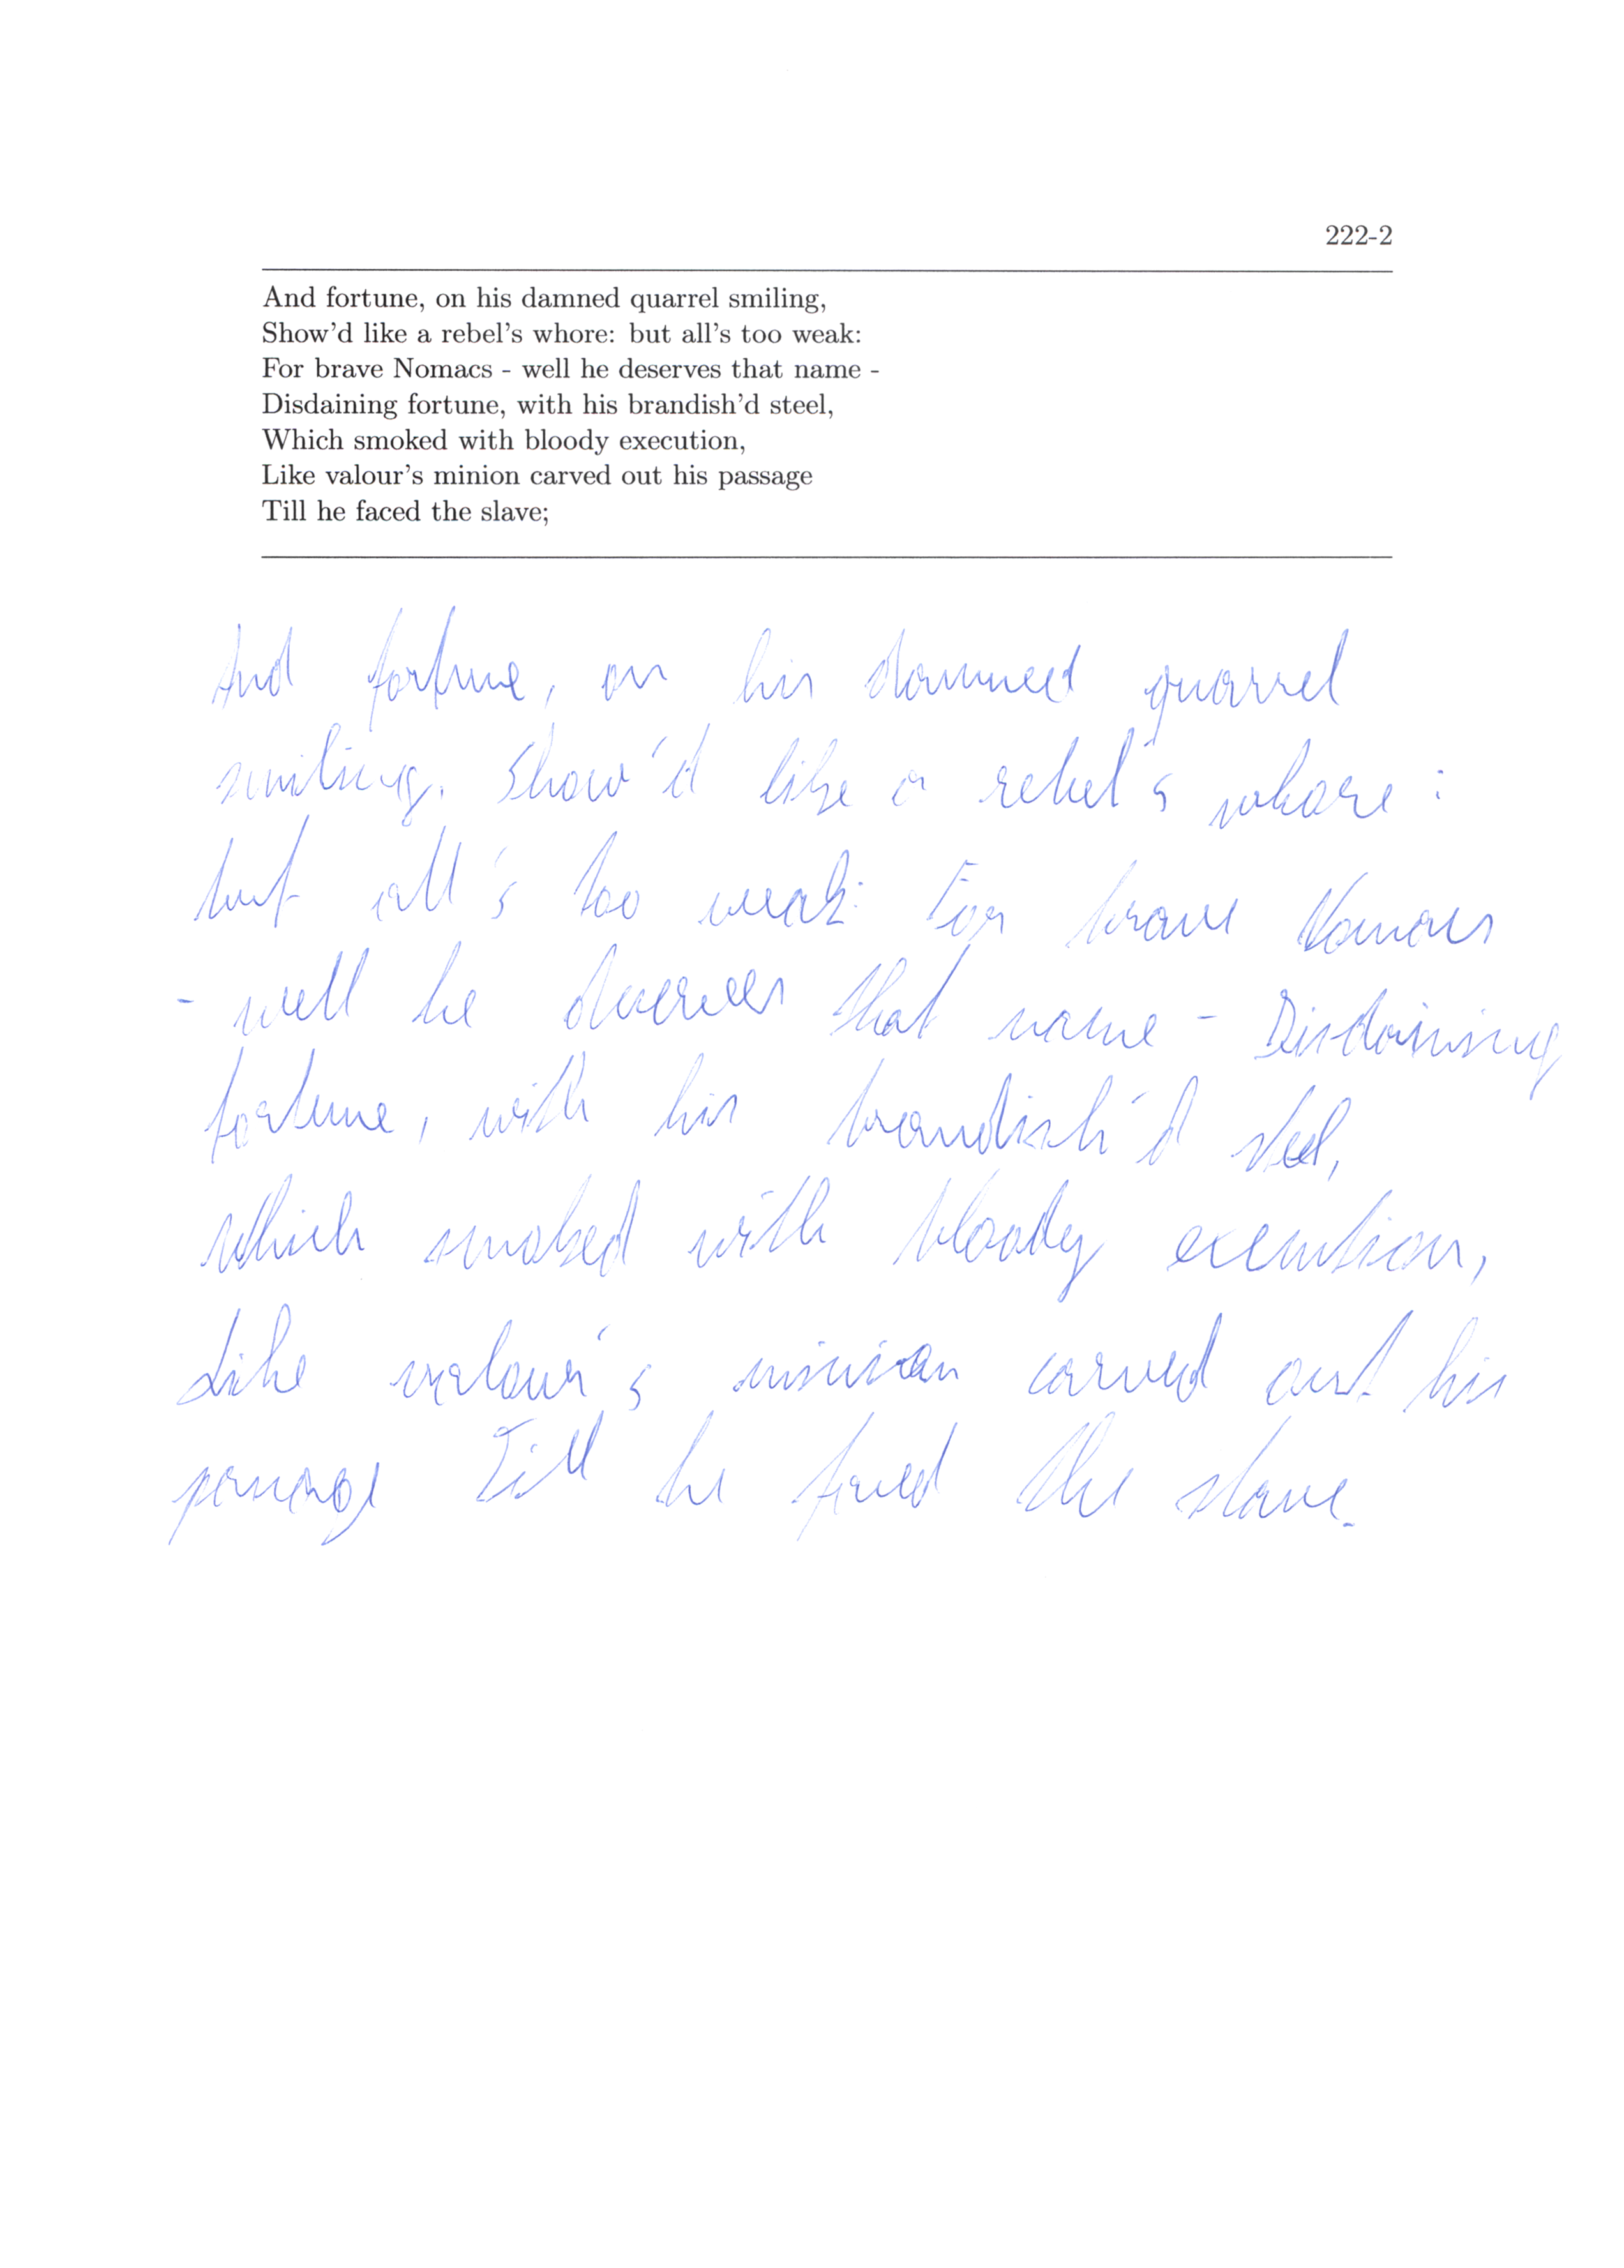 222-2
And fortune, on his damned quarrel smiling,
Show'd like a rebel's whore: but all's too weak:
For brave Nomacs - well he deserves that name -
Disdaining fortune, with his brandish'd steel,
Which smoked with bloody execution,
Like valour's minion carved out his passage
Till he faced the slave;
And fortune, on his damned quarrel
smiling, Show'd like a rebel's whore :
but all's too weak: For brave Nomacs
- well he deserves that name - Disdaining
fortune, with his brandish'd steel,
which smoked with bloody execution,
Like valour's minion carved out his
passage Till he faced the slave.